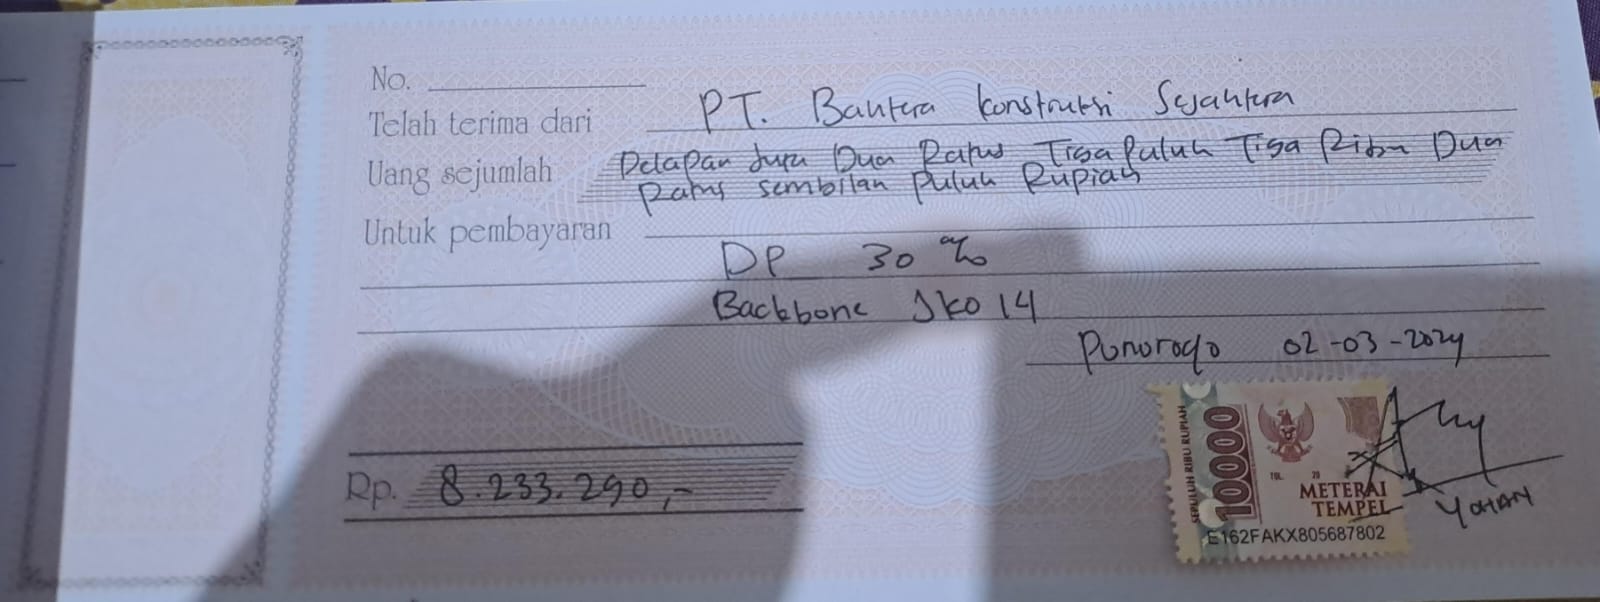 No.
Telah terima dari PT. Bahtera Konstruksi Sejahtera
Uang sejumlah Delapan Juta Dua Ratus Tiga Puluh Tiga Ribu Dua
Ratus Sembilan Puluh Rupiah
Untuk pembayaran
DP 30 %
Backbone Jko 14
Ponorogo 02-03-2024
Rp. 8.233.290,-
SEPULUH RIBU RUPIAH
10000
TGL. 20
METERAI
TEMPEL
E162FAKX805687802
YOHAN